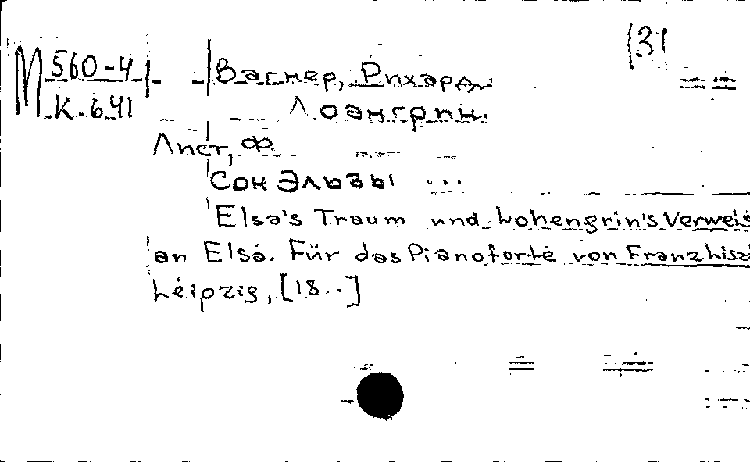 (3)
М 560-4
к.641
Вагнер, Рихард.
Лоэнгрин.
Лист, Ф.
Сон Эльзы ...
Elsa's Traum und Lohengrin's Verweis
an Elsa. Für das Pianoforte von Franz Liszt
Leipzig, [18..]